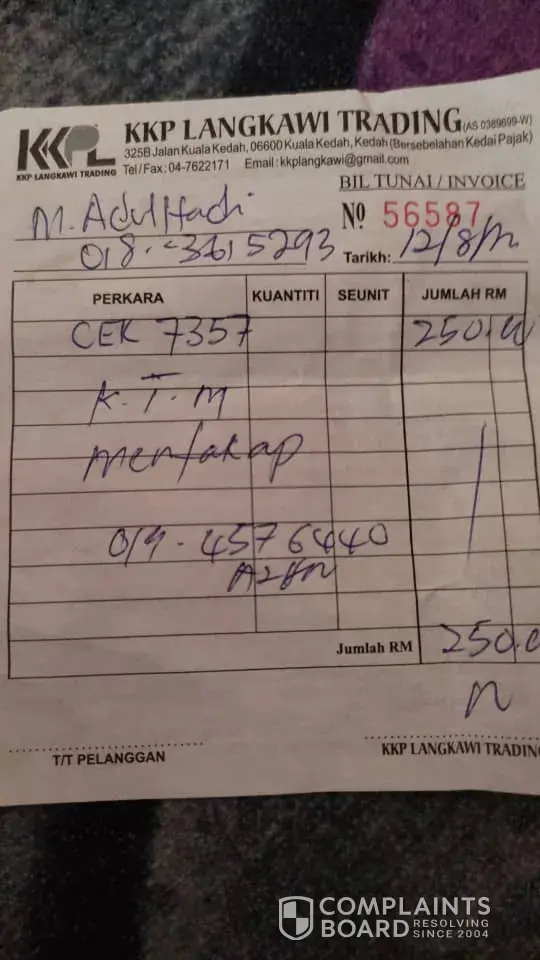 KKPL
KKP LANGKAWI TRADING
KKP LANGKAWI TRADING (AS 0389699-W)
325B Jalan Kuala Kedah, 06600 Kuala Kedah, Kedah (Bersebelahan Kedai Pajak)
Tel/Fax: 04-7622171 Email: kkplangkawi@gmail.com
BIL TUNAI / INVOICE
M. Adul Hadi
Nº 56587
018-3615293
Tarikh: 12/8/
PERKARA KUANTITI SEUNIT JUMLAH RM
CEK 7357 250.00
K.T.M
019-4576440
Jumlah RM 250.0
T/T PELANGGAN
KKP LANGKAWI TRADING
COMPLAINTS
BOARD RESOLVING
SINCE 2004